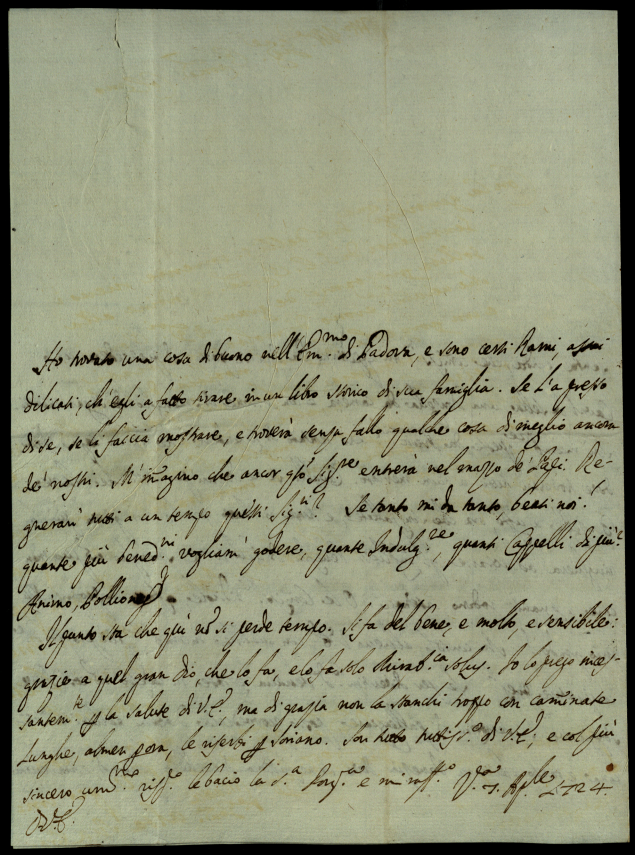 Ho trovato una cosa di buono nell'Em.mo di Padova, e sono certi Rami, assai
dilicati, ch'egli a fatto tirare in un libro storico di sua famiglia. Se l'a presso
di se, se la faccia mostrare, e troverà senza fallo qualche cosa di meglio ancora
de' nostri. M'imagino che ancor entrerà nel mazzo de'
gneran tutti a un tempo questi Sig.ri? Se tanto mi da tanto, beati noi!
quante più bened.ni vogliam godere, quante Indulg.ze, quanti Cappelli di più!
Animo,
Il punto sta che qui nō si perde tempo. Si fa del bene, e molto, e sensibile:
grazie a quel gran Dio, che lo fa, e lo fa solo solus. Io lo prego inces-
santem.te p la salute di V.E., ma di grazia non la stanchi troppo con caminate
lunghe, almen p ora, le riservi p Soriano. Son tutto di V.E., e col più
sincero um.mo le bacio la S.a e mi V.a Ap.le 1724.
D.V.E.